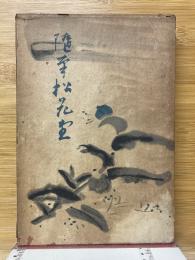 随筆松花堂